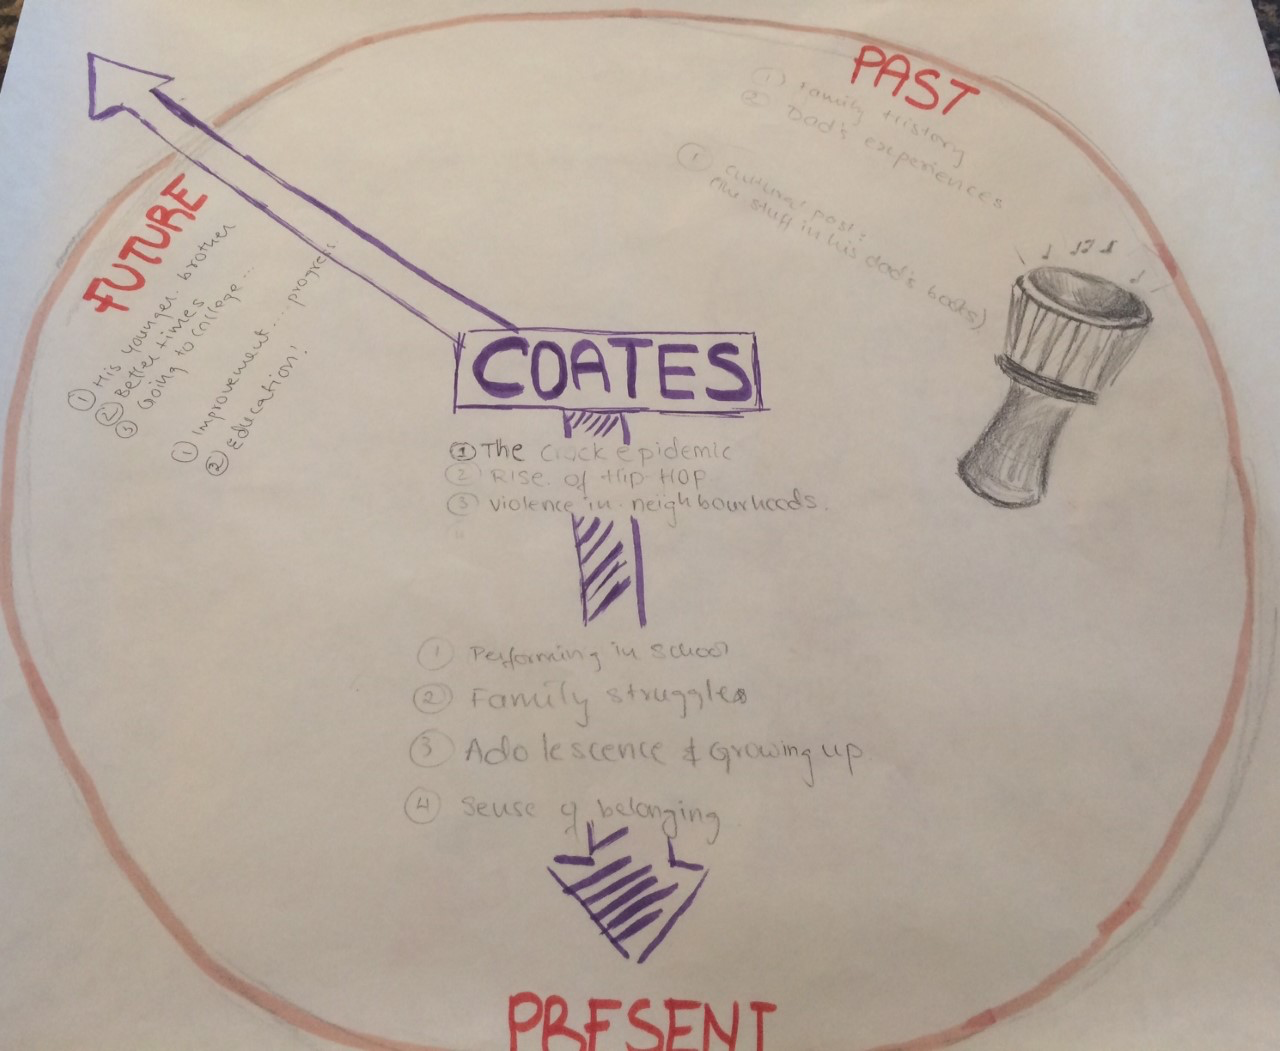 PAST
① Family History
② Dad's experiences
① Cultural past:
(the stuff in his dad's books)
FUTURE
① His younger brother
② Better times
③ Going to college...
① Improvement.... progress.
② Education!
COATES
① The Crack epidemic
② Rise of Hip HOP
③ violence in neighbourhoods.
① Performing in school
② Family struggles
③ Adolescence & Growing up
④ Sense of belonging
PRESENT